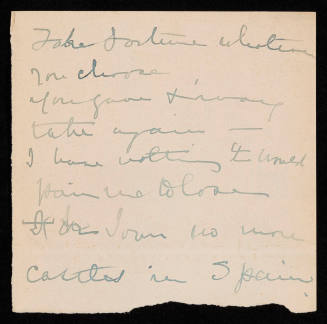 Take Fortune whatever
you choose
You gave & may
take again —
I have nothing 't would
pain me to lose
I own no more
castles in Spain.